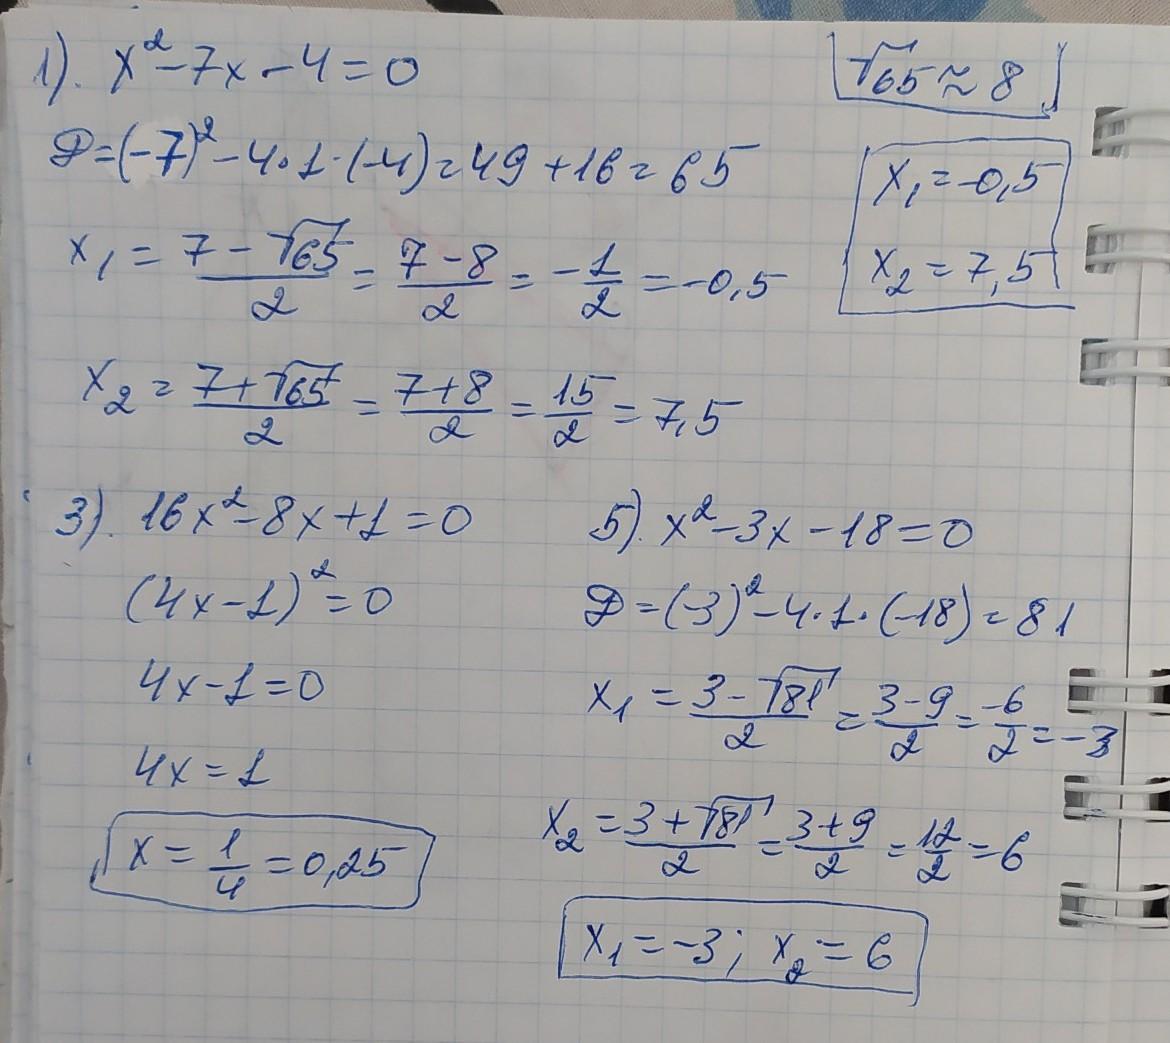 1). x²-7x-4=0
√65≈8
D=(-7)²-4·1·(-4)=49+16=65
x₁=-0,5
x₂=7,5
x₁ = (7-√65)/2 = (7-8)/2 = -1/2 = -0,5
x₂ = (7+√65)/2 = (7+8)/2 = 15/2 = 7,5
3). 16x²-8x+1=0
(4x-1)²=0
4x-1=0
4x=1
x = 1/4 = 0,25
5). x²-3x-18=0
D=(-3)²-4·1·(-18)=81
x₁ = (3-√81)/2 = (3-9)/2 = -6/2 = -3
x₂ = (3+√81)/2 = (3+9)/2 = 12/2 = 6
x₁=-3; x₂=6